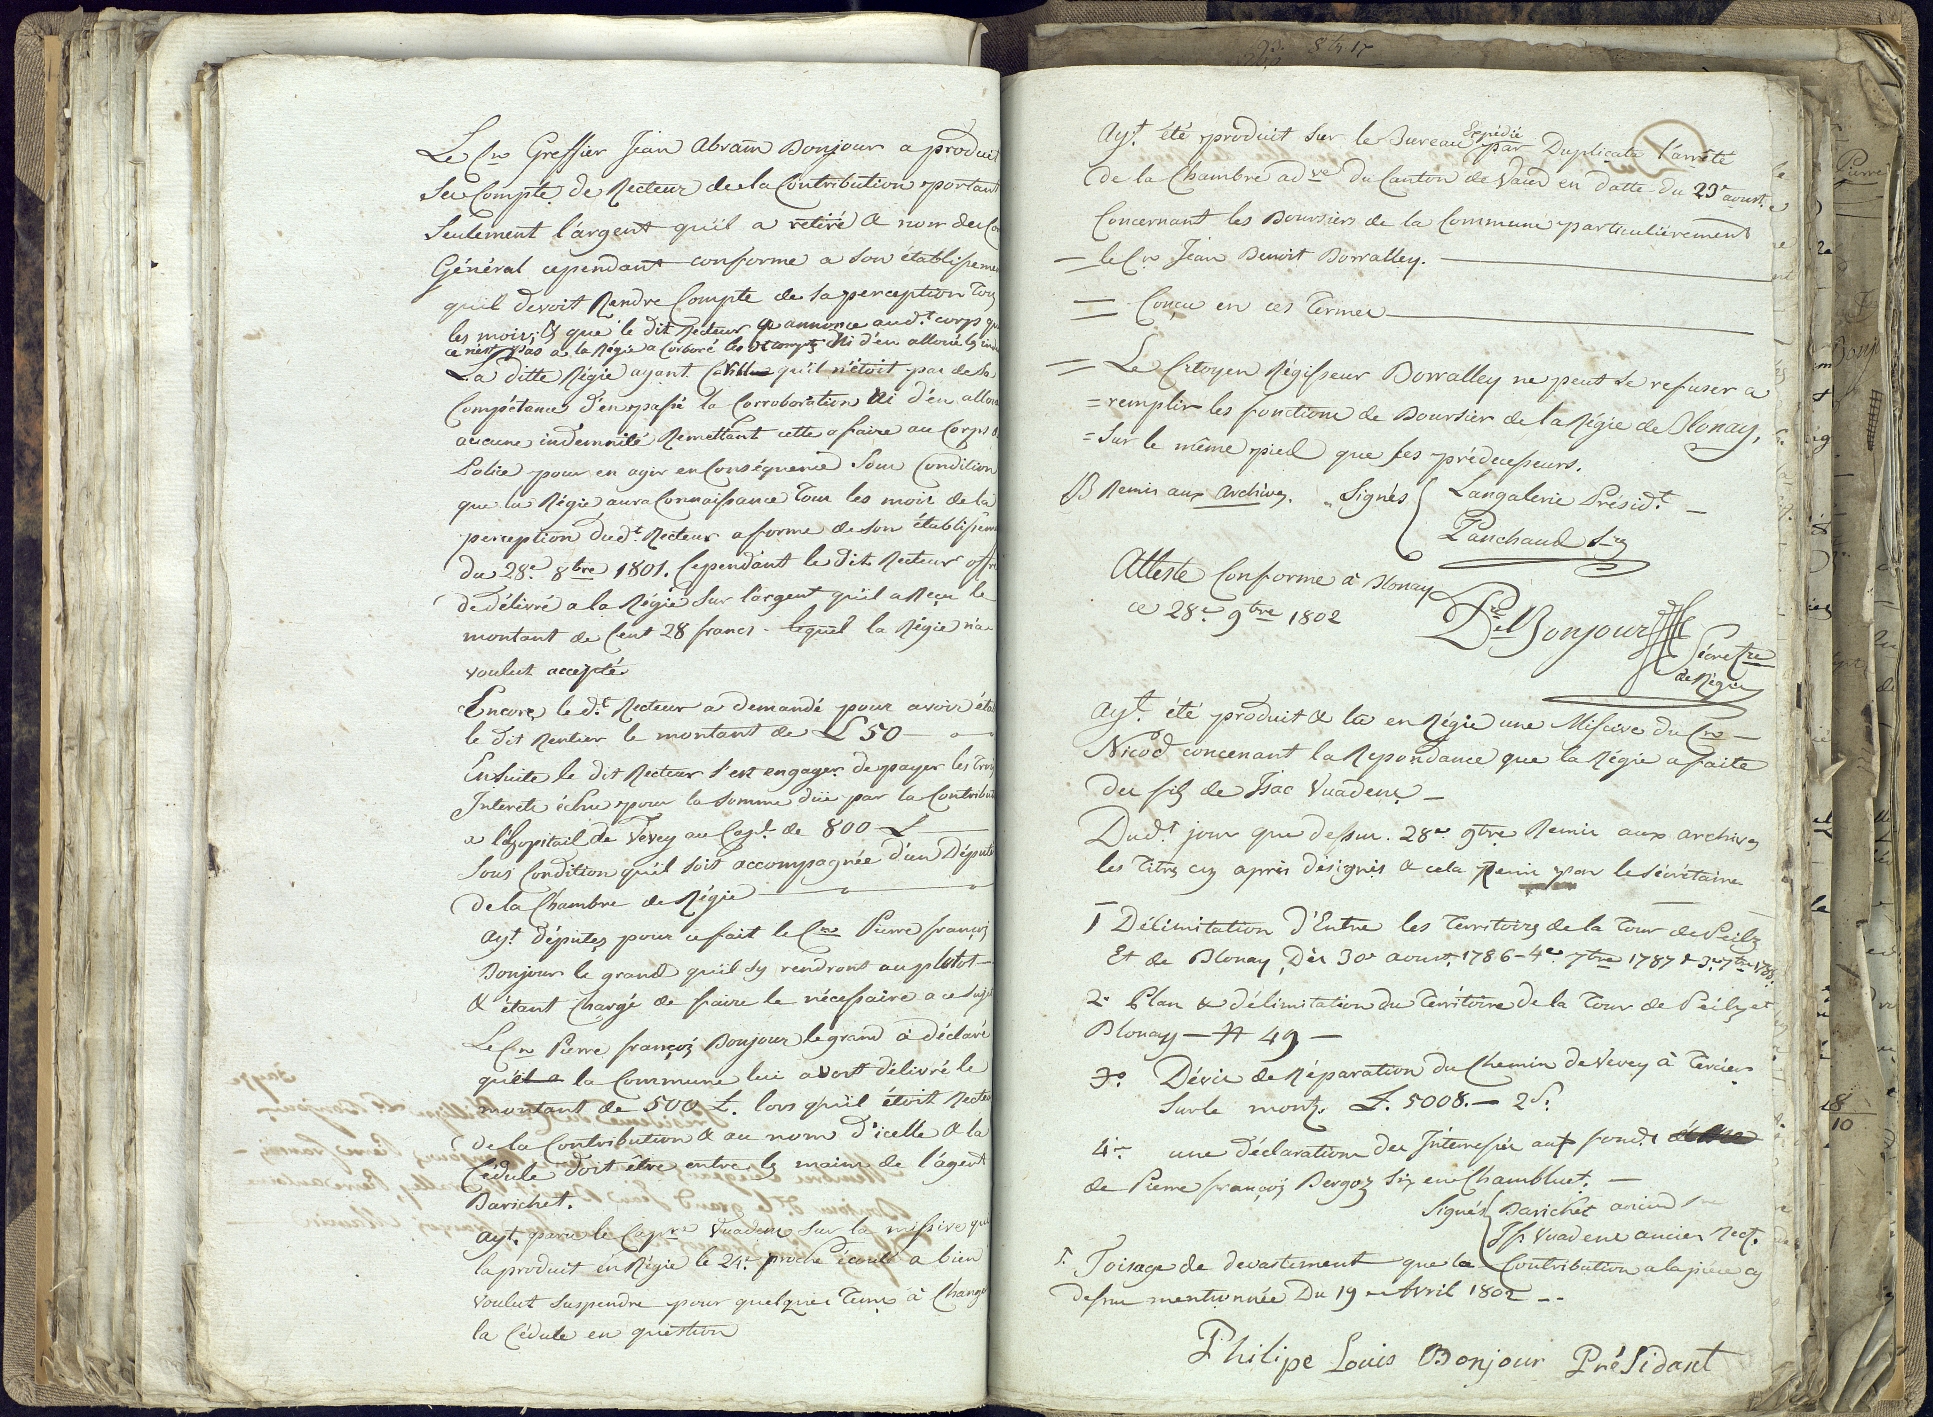 Le Cn Greffier Jean Abram Bonjour a produit
Ses Compte de Recteur de la Contribution portant
Seulement l'argent qu'il a retiré & nom des
Général cependant conforme a son établissemen
qu'il devoit Rendre Compte de sa perception Tous
les mois, & que le dit Recteur a annonce aud.t corps que
ce n'est pas a la Régie a Corboré les compts Ni d'en alloué
La ditte Régie ayant qu'il n'étoit pas de sa
Compétance d'en passé la Corroboration Ni d'en allou
aucune indemnité Remettant cette afaire au Corps de
Police pour en agir en Conséquence Sous Condition
que la Régie aura Connaissance Tous les mois de la
perception dud.t Recteur a forme de son établissem
du 28.e 8bre 1801. Cependant le dit Recteur offre
de délivré a la Régie Sur l'argent qu'il a Reçu le
montant de Cent 28 francs - lequel la Régie n'a
voulut accepté
Encore le d.t Recteur a demandé pour avoir été
le dit Rentier le montant de L 50
Ensuite le dit Recteur s'est engager de payer les trois
Interets échus pour la Somme düe par la Contribut
a l'hopitail de Vevey au Cap.l de 800 L
Sous Condition qu'il soit accompagnée d'un Député
de la Chambre de Régie
ay.t députez pour ce fait le Cn Pierre françois
Bonjour le grand qu'il sy rendront au plutot
& étant Chargé de faire le nécessaire a ce Sujet
Le Cn Pierre françois Bonjour le grand à déclaré
qu'il a la Commune lui avoit délivré le
montant de 500 L. lors qu'il étoit Recteur
de la Contribution & au nom d'icelle & la
Cédule doit être entre les mains de l'agent
Barichet.
ayt. paru le Cap.ne Vuadens Sur la missive que
la produit en Régie le 24.e proche écoulé a bien
voulut Suspendre pour quelques Tems à Change
la Cédule en question
Ay.t été produit Sur le Bureau Expédié par Duplicata l'arrêté
de la Chambre ad.ve du Canton de Vaud en datte du 23.e aoust.
Concernant les Boursiers de la Commune particulièrement
le Cn Jean Benoit Borralley.
= Conçu en ces Termes
= Le Citoyen Régisseur Borralley ne peut se refuser a
= remplir les fonctions de Boursier de la Régie de Blonay,
= Sur le même pied que ses prédecesseurs.
B Remis aux Archives. Signés Langalerie Présid.t
Panchaud Sre
Atteste Conforme à Blonay
ce 28.e 9bre 1802
Bonjour Sécretre
de Régie
Ay.t été produit & lu en Régie une Missive du Cn
Nicod concenant la Repondance que la Régie a faite
des fils de Isac Vuadens
Dud.t jour que dessus. 28.e 9bre Remis aux archives
les Titres cy après désignés & cela Remis par le Sécrétaire
1 Délimitation d'Entre les Territoires de la Tour de Peilz
Et de Blonay, Dès 30e aoust. 1786 - 4e 7bre 1787 & 3e 7bre 1788.
2° Plan & délimitation du Territoire de la Tour de Peilz et
Blonay - N 49 -
3° Dévis de Réparation du Chemin de Vevey à Terciers
Sur le mont. L. 5008. - 2 S.
4e une déclaration des Interressés aux fonds
de Pierre françois Bergoz Sis en Chambluet.
Signés Barichet
Vuadens ancien Rect.
5. Toisage de devastement que la Contribution a la pièce cy
dessus mentionnée Du 19e Avril 1802
Philipe Louis Bonjour Présidant